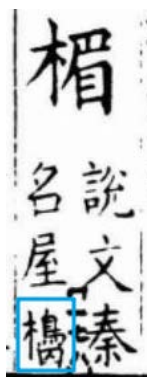 楣
說文秦
名屋櫋